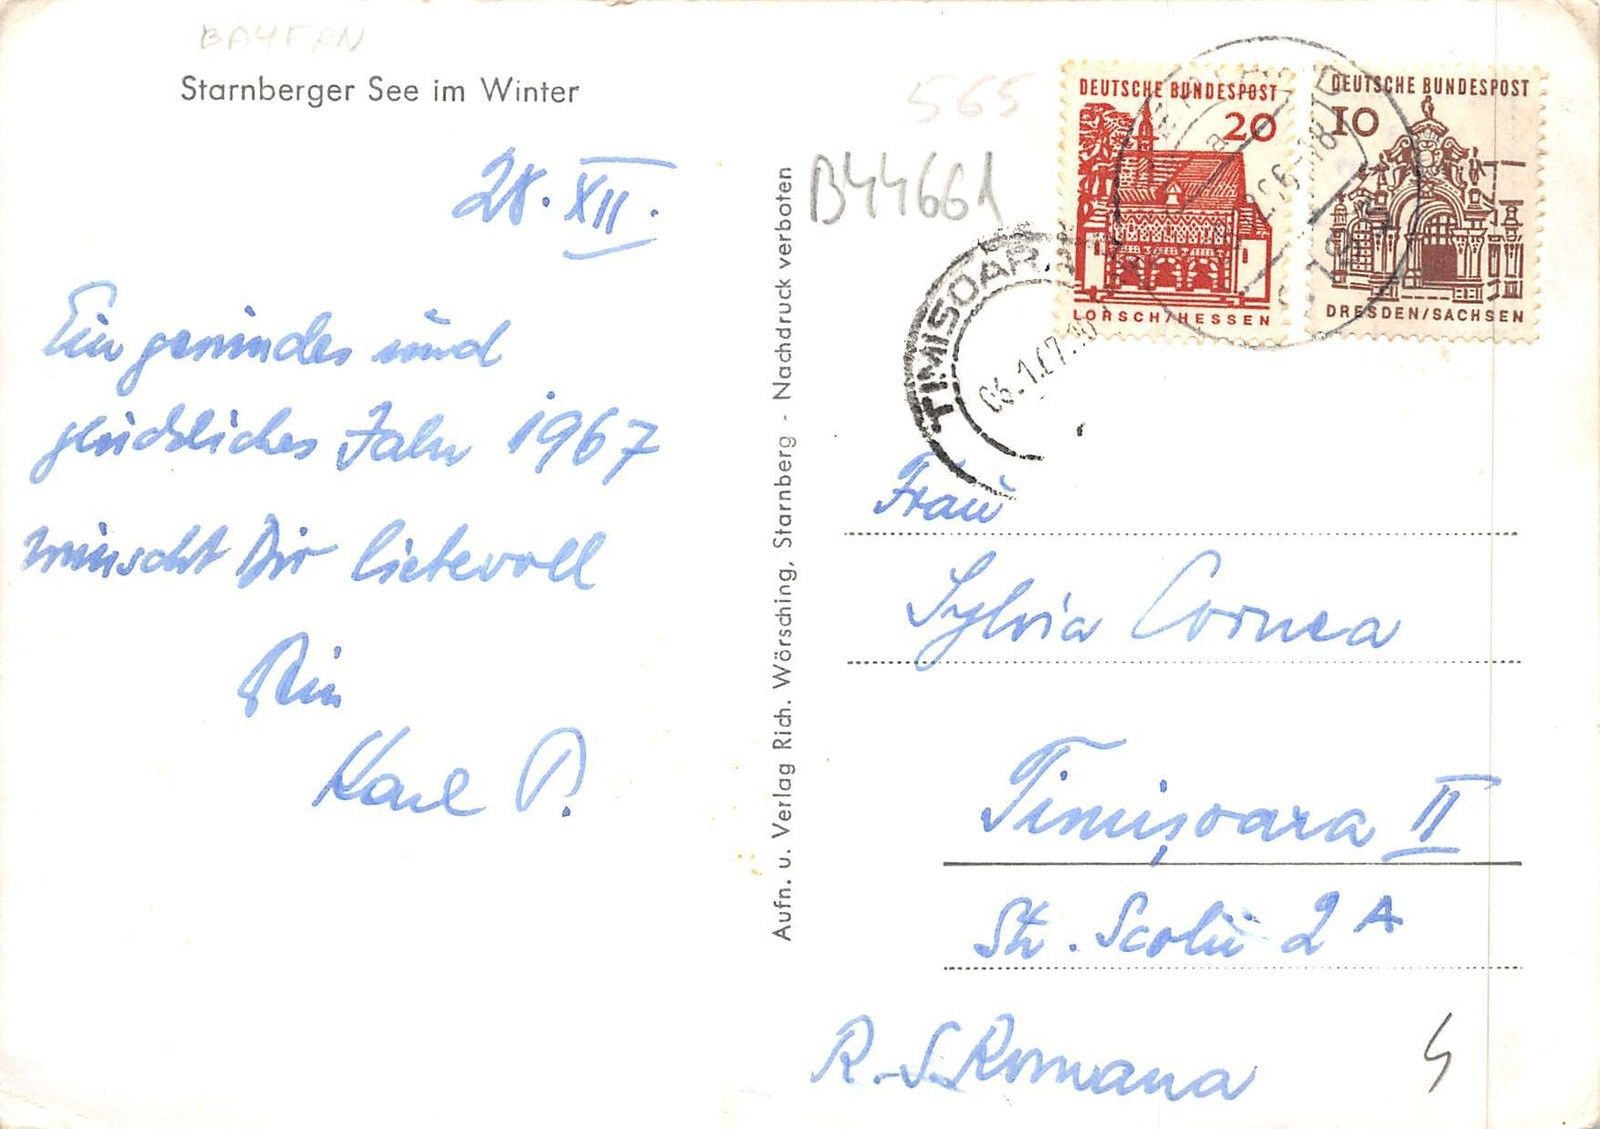 BAYERN
Starnberger See im Winter
28. XII.
Ein gesundes und
glückliches Jahr 1967
wünscht Dir liebevoll
Karl P.
Aufn. u. Verlag Rich. Wörsching, Starnberg - Nachdruck verboten
565
B44661
DEUTSCHE BUNDESPOST
20
LORSCH/HESSEN
DEUTSCHE BUNDESPOST
10
DRESDEN/SACHSEN
TIMISOARA
06.1.67
Frau
Sylvia Cornea
Timişoara II
Str. Scolii 2A
R.S. Romana